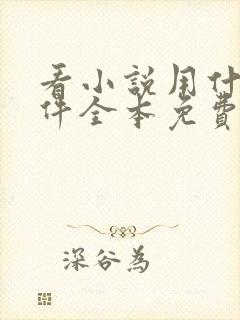 看小説用什
件全本免費
深谷為